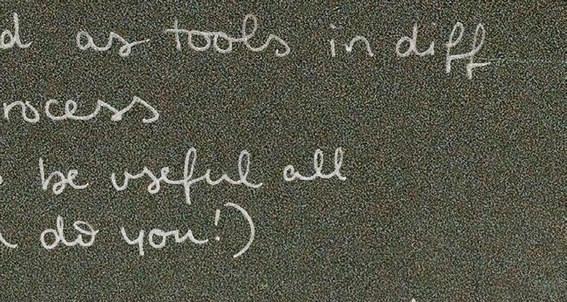 d as tools in diff
rocess
be useful all
do you!)